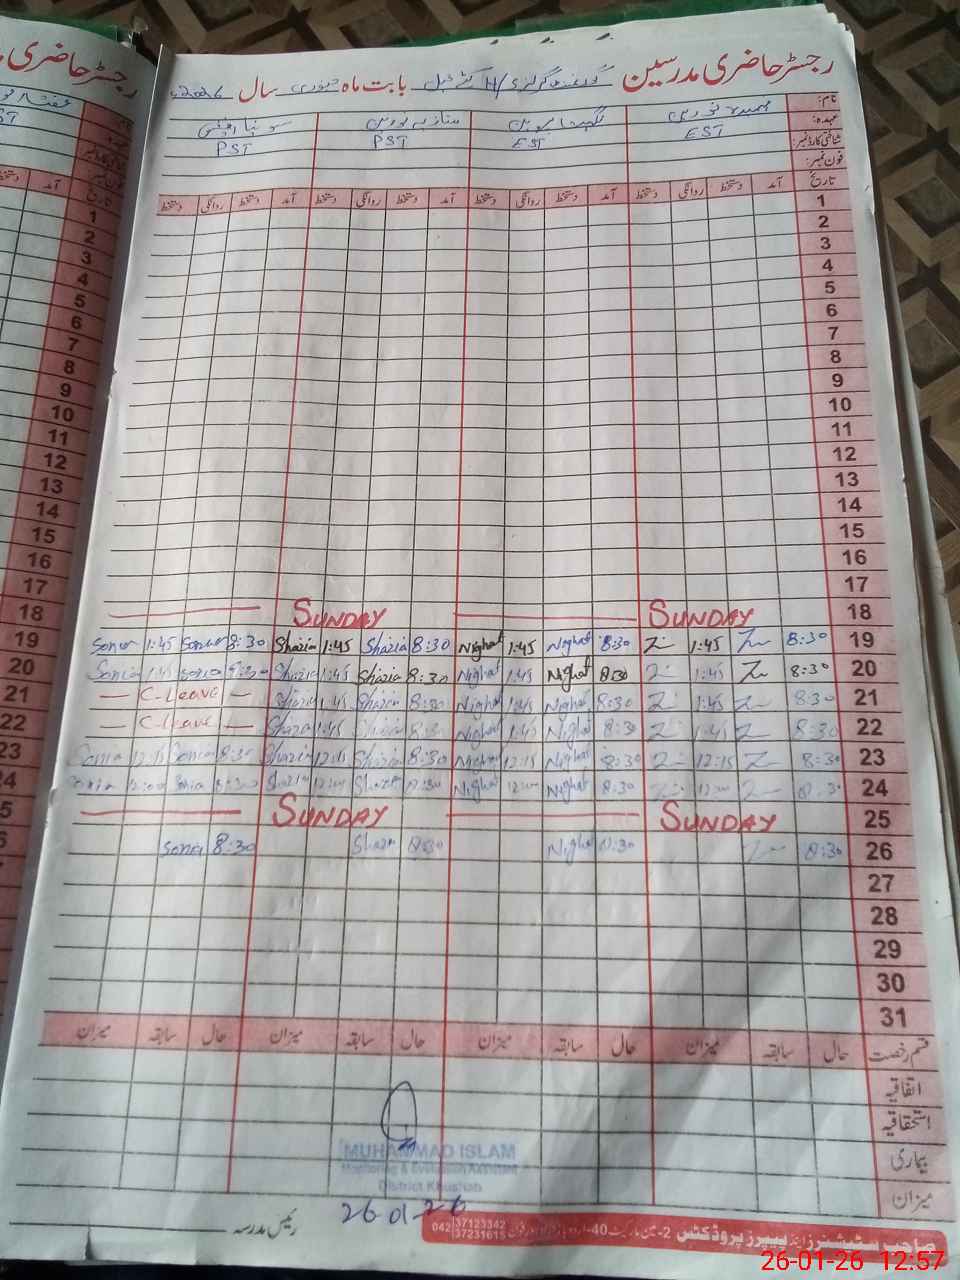 رجسٹر حاضری مدرسین بابت ماہ جنوری سال 2026ء
نام:
عہدہ: EST EST PST PST
شناختی کارڈ نمبر:
فون نمبر:
تاریخ آمد دستخط روانگی دستخط آمد دستخط روانگی دستخط آمد دستخط روانگی دستخط آمد دستخط روانگی دستخط
1
2
3
4
5
6
7
8
9
10
11
12
13
14
15
16
17
18 SUNDAY SUNDAY
19 8:30 1:45 8:30 Nighat 1:45 Nighat 8:30 Shazia 1:45 Shazia 8:30 Sonia 1:45 Sonia
20 8:30 1:45 8:30 Nighat 1:45 Nighat 8:30 Shazia 1:45 Shazia 8:30 Sonia 1:45 Sonia
21 8:30 1:45 8:30 Nighat 1:45 Nighat 8:30 Shazia 1:45 Shazia C-Leave
22 8:30 1:45 8:30 Nighat 1:45 Nighat 8:30 Shazia 1:45 Shazia C-Leave
23 8:30 12:15 8:30 Nighat 12:15 Nighat 8:30 Shazia 12:15 Shazia 8:30 Sonia 12:15 Sonia
24 8:30 12:00 8:30 Nighat 12:00 Nighat 8:30 Shazia 12:00 Shazia 8:30 Sonia 12:00 Sonia
25 SUNDAY SUNDAY
26 8:30 8:30 Nighat 8:30 Shazia 8:30 Sonia
27
28
29
30
31
قسم رخصت حال سابقہ میزان حال سابقہ میزان حال سابقہ میزان حال سابقہ میزان
اتفاقیہ
استحقاقیہ
بیماری
میزان
MUHAMMAD ISLAM
Monitoring & Evaluation Assistant
District Khushab
26 01 26
رئیس مدرسہ
صاحب سٹیشنرز اینڈ پیپرز پروڈکٹس
042 37123342
37231615
26-01-26 12:57